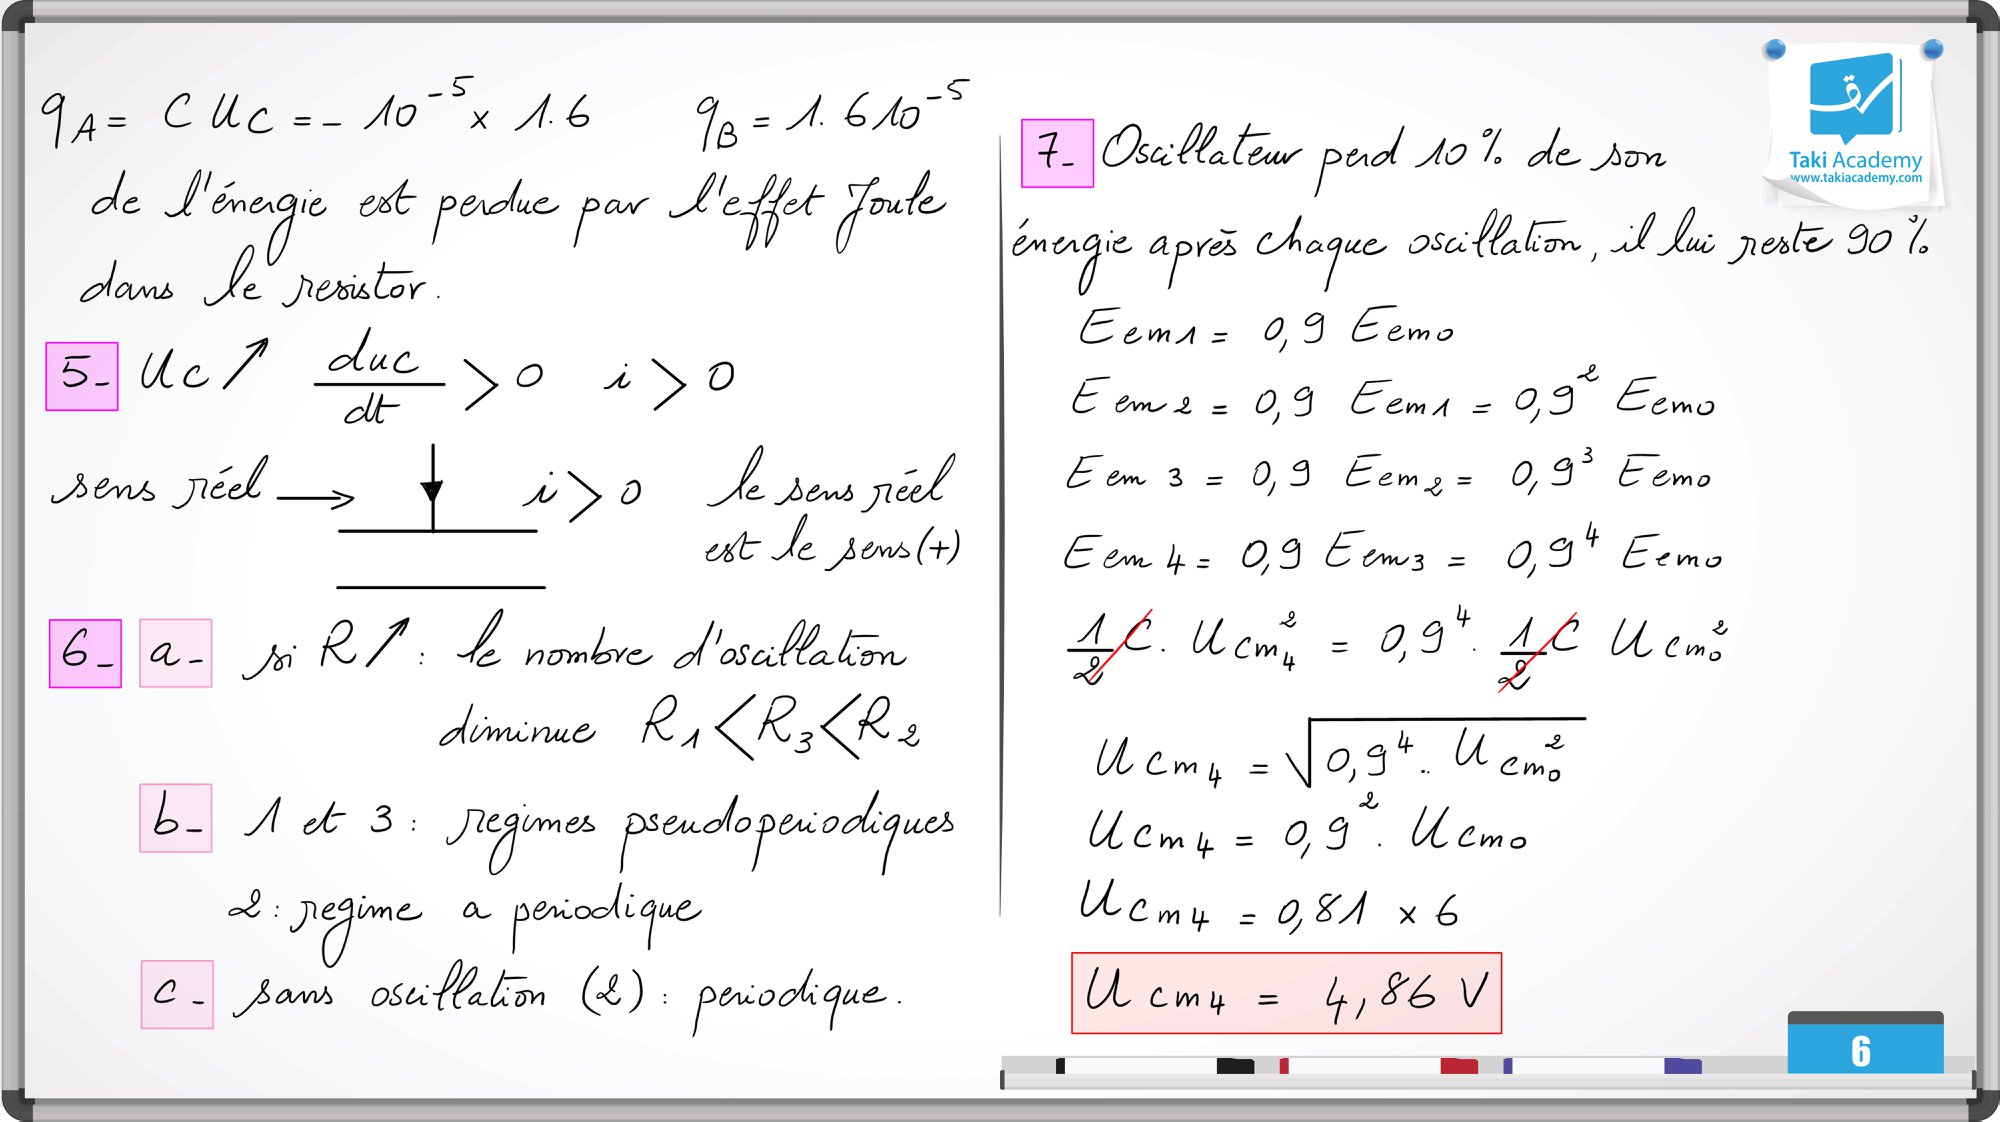 qA = C uC = - 10⁻⁵ × 1.6 qB = 1.6 10⁻⁵
de l'énergie est perdue par l'effet Joule
dans le resistor.
5- uC ↗ duc/dt > 0 i > 0
sens réel → i > 0 le sens réel
est le sens (+)
6- a- si R ↗ : le nombre d'oscillation
diminue R1 < R3 < R2
b- 1 et 3 : regimes pseudoperiodiques
2 : regime a periodique
c- sans oscillation (2) : periodique.
7- Oscillateur perd 10% de son
énergie après chaque oscillation, il lui reste 90%
Eem1 = 0,9 Eem0
Eem2 = 0,9 Eem1 = 0,9² Eem0
Eem3 = 0,9 Eem2 = 0,9³ Eem0
Eem4 = 0,9 Eem3 = 0,9⁴ Eem0
1/2 C. Ucm4² = 0,9⁴. 1/2 C Ucm0²
Ucm4 = √(0,9⁴. Ucm0²)
Ucm4 = 0,9². Ucm0
Ucm4 = 0,81 × 6
Ucm4 = 4,86 V
Taki Academy
www.takiacademy.com
6